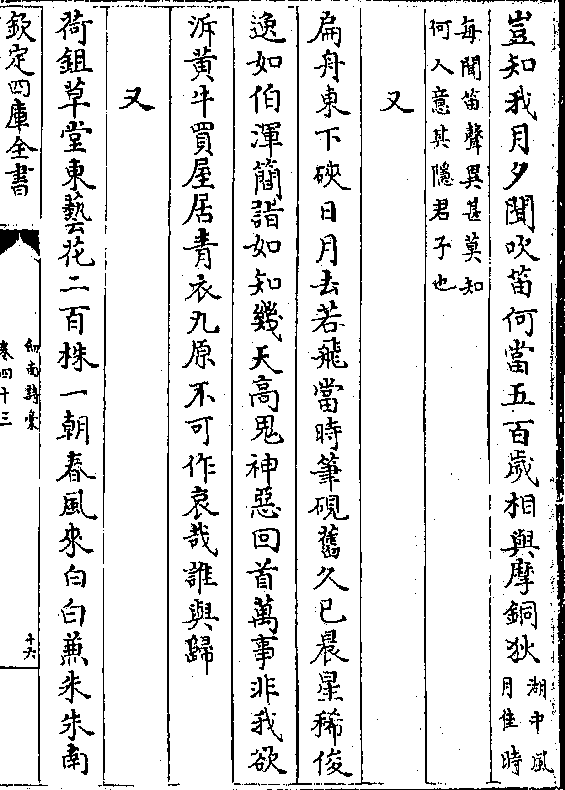 豈知我月夕聞吹笛何當五百歲相與摩銅狄湖中風
月佳時
每聞笛聲異甚莫知
何人意其隱君子也
又
扁舟東下硤日月去若飛當時筆硯舊久已晨星稀俊
逸如伯渾簡詣如知幾天高鬼神惡回首萬事非我欲
泝黃牛買屋居青衣九原不可作哀哉誰與歸
又
荷鉏草堂東藝花二百株一朝春風來白白兼朱朱南
欽定四庫全書
劍南詩稾
卷四十三
十六